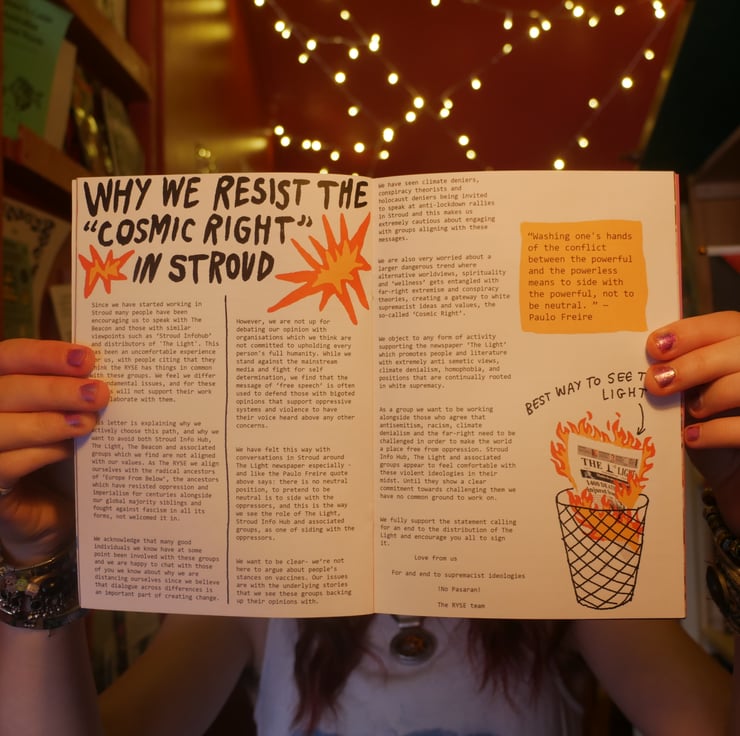 WHY WE RESIST THE
"COSMIC RIGHT"
IN STROUD
Since we have started working in
Stroud many people have been
encouraging us to speak with The
Beacon and those with similar
viewpoints such as 'Stroud Infohub'
and distributors of 'The Light'. This
has been an uncomfortable experience
for us, with people citing that they
think the RYSE has things in common
with these groups. We feel we differ
on fundamental issues, and for these
will not support their work
collaborate with them.
This letter is explaining why we
actively choose this path, and why we
want to avoid both Stroud Info Hub,
The Light, The Beacon and associated
groups which we find are not aligned
with our values. As The RYSE we align
ourselves with the radical ancestors
of 'Europe From Below', the ancestors
which have resisted oppression and
imperialism for centuries alongside
our global majority siblings and
fought against fascism in all its
forms, not welcomed it in.
We acknowledge that many good
individuals we know have at some
point been involved with these groups
and we are happy to chat with those
of you we know about why we are
distancing ourselves since we believe
that dialogue across differences is
an important part of creating change.
However, we are not up for
debating our opinion with
organisations which we think are
not committed to upholding every
person's full humanity. While we
stand against the mainstream
media and fight for self
determination, we find that the
message of 'free speech' is often
used to defend those with bigoted
opinions that support oppressive
systems and violence to have
their voice heard above any other
concerns.
We have felt this way with
conversations in Stroud around
The Light newspaper especially -
and like the Paulo Freire quote
above says: there is no neutral
position, to pretend to be
neutral is to side with the
oppressors, and this is the way
we see the role of The Light,
Stroud Info Hub and associated
groups, as one of siding with the
oppressors.
We want to be clear- we're not
here to argue about people's
stances on vaccines. Our issues
are with the underlying stories
that we see these groups backing
up their opinions with.
We have seen climate deniers,
conspiracy theorists and
holocaust deniers being invited
to speak at anti-lockdown rallies
in Stroud and this makes us
extremely cautious about engaging
with groups aligning with these
messages.
We are also very worried about a
larger dangerous trend where
alternative worldviews, spirituality
and 'wellness' gets entangled with
far-right extremise and conspiracy
theories, creating a gateway to white
supremacist ideas and values, the
so-called 'Cosmic Right'.
We object to any form of activity
supporting the newspaper 'The Light'
which promotes people and literature
with extremely anti sametic views,
climate denialism, homophobia, and
positions that are continually rooted
in white supremacy.
As a group we want to be working
alongside those who agree that
antisemitism, racism, climate
denialism and the far-right need to be
challenged in order to make the world
a place free from oppression. Stroud
Info Hub, The Light and associated
groups appear to feel comfortable with
these violent ideologies in their
midst. Until they show a clear
commitment towards challenging them we
have no common ground to work on.
We fully support the statement calling
for an end to the distribution of The
Light and encourage you all to sign
it.
Love from us
For and end to supremacist ideologies
!No Pasaran!
The RYSE team
"Washing one's hands
of the conflict
between the powerful
and the powerless
means to side with
the powerful, not to
be neutral. " —
Paulo Freire
BEST WAY TO SEE T
LIGHT
THE LIGHT